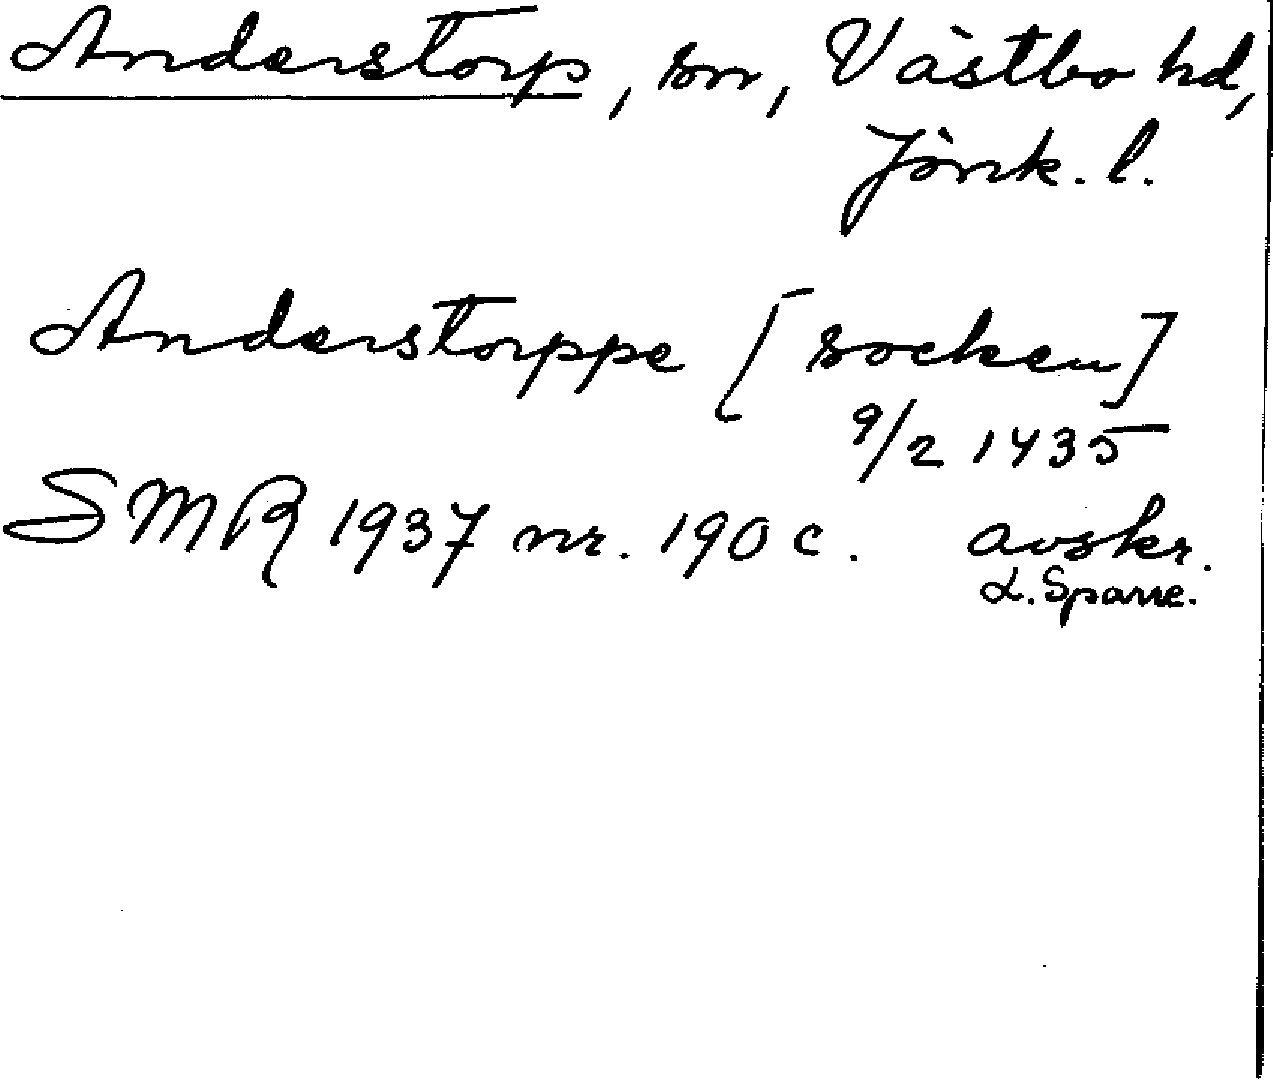 Anderstorp, sn, Västbo hd,
Jönk. l.
Anderstorppe [socken]
9/2 1435
SMR 1937 nr. 190 c. avskr.
L. Sparre.